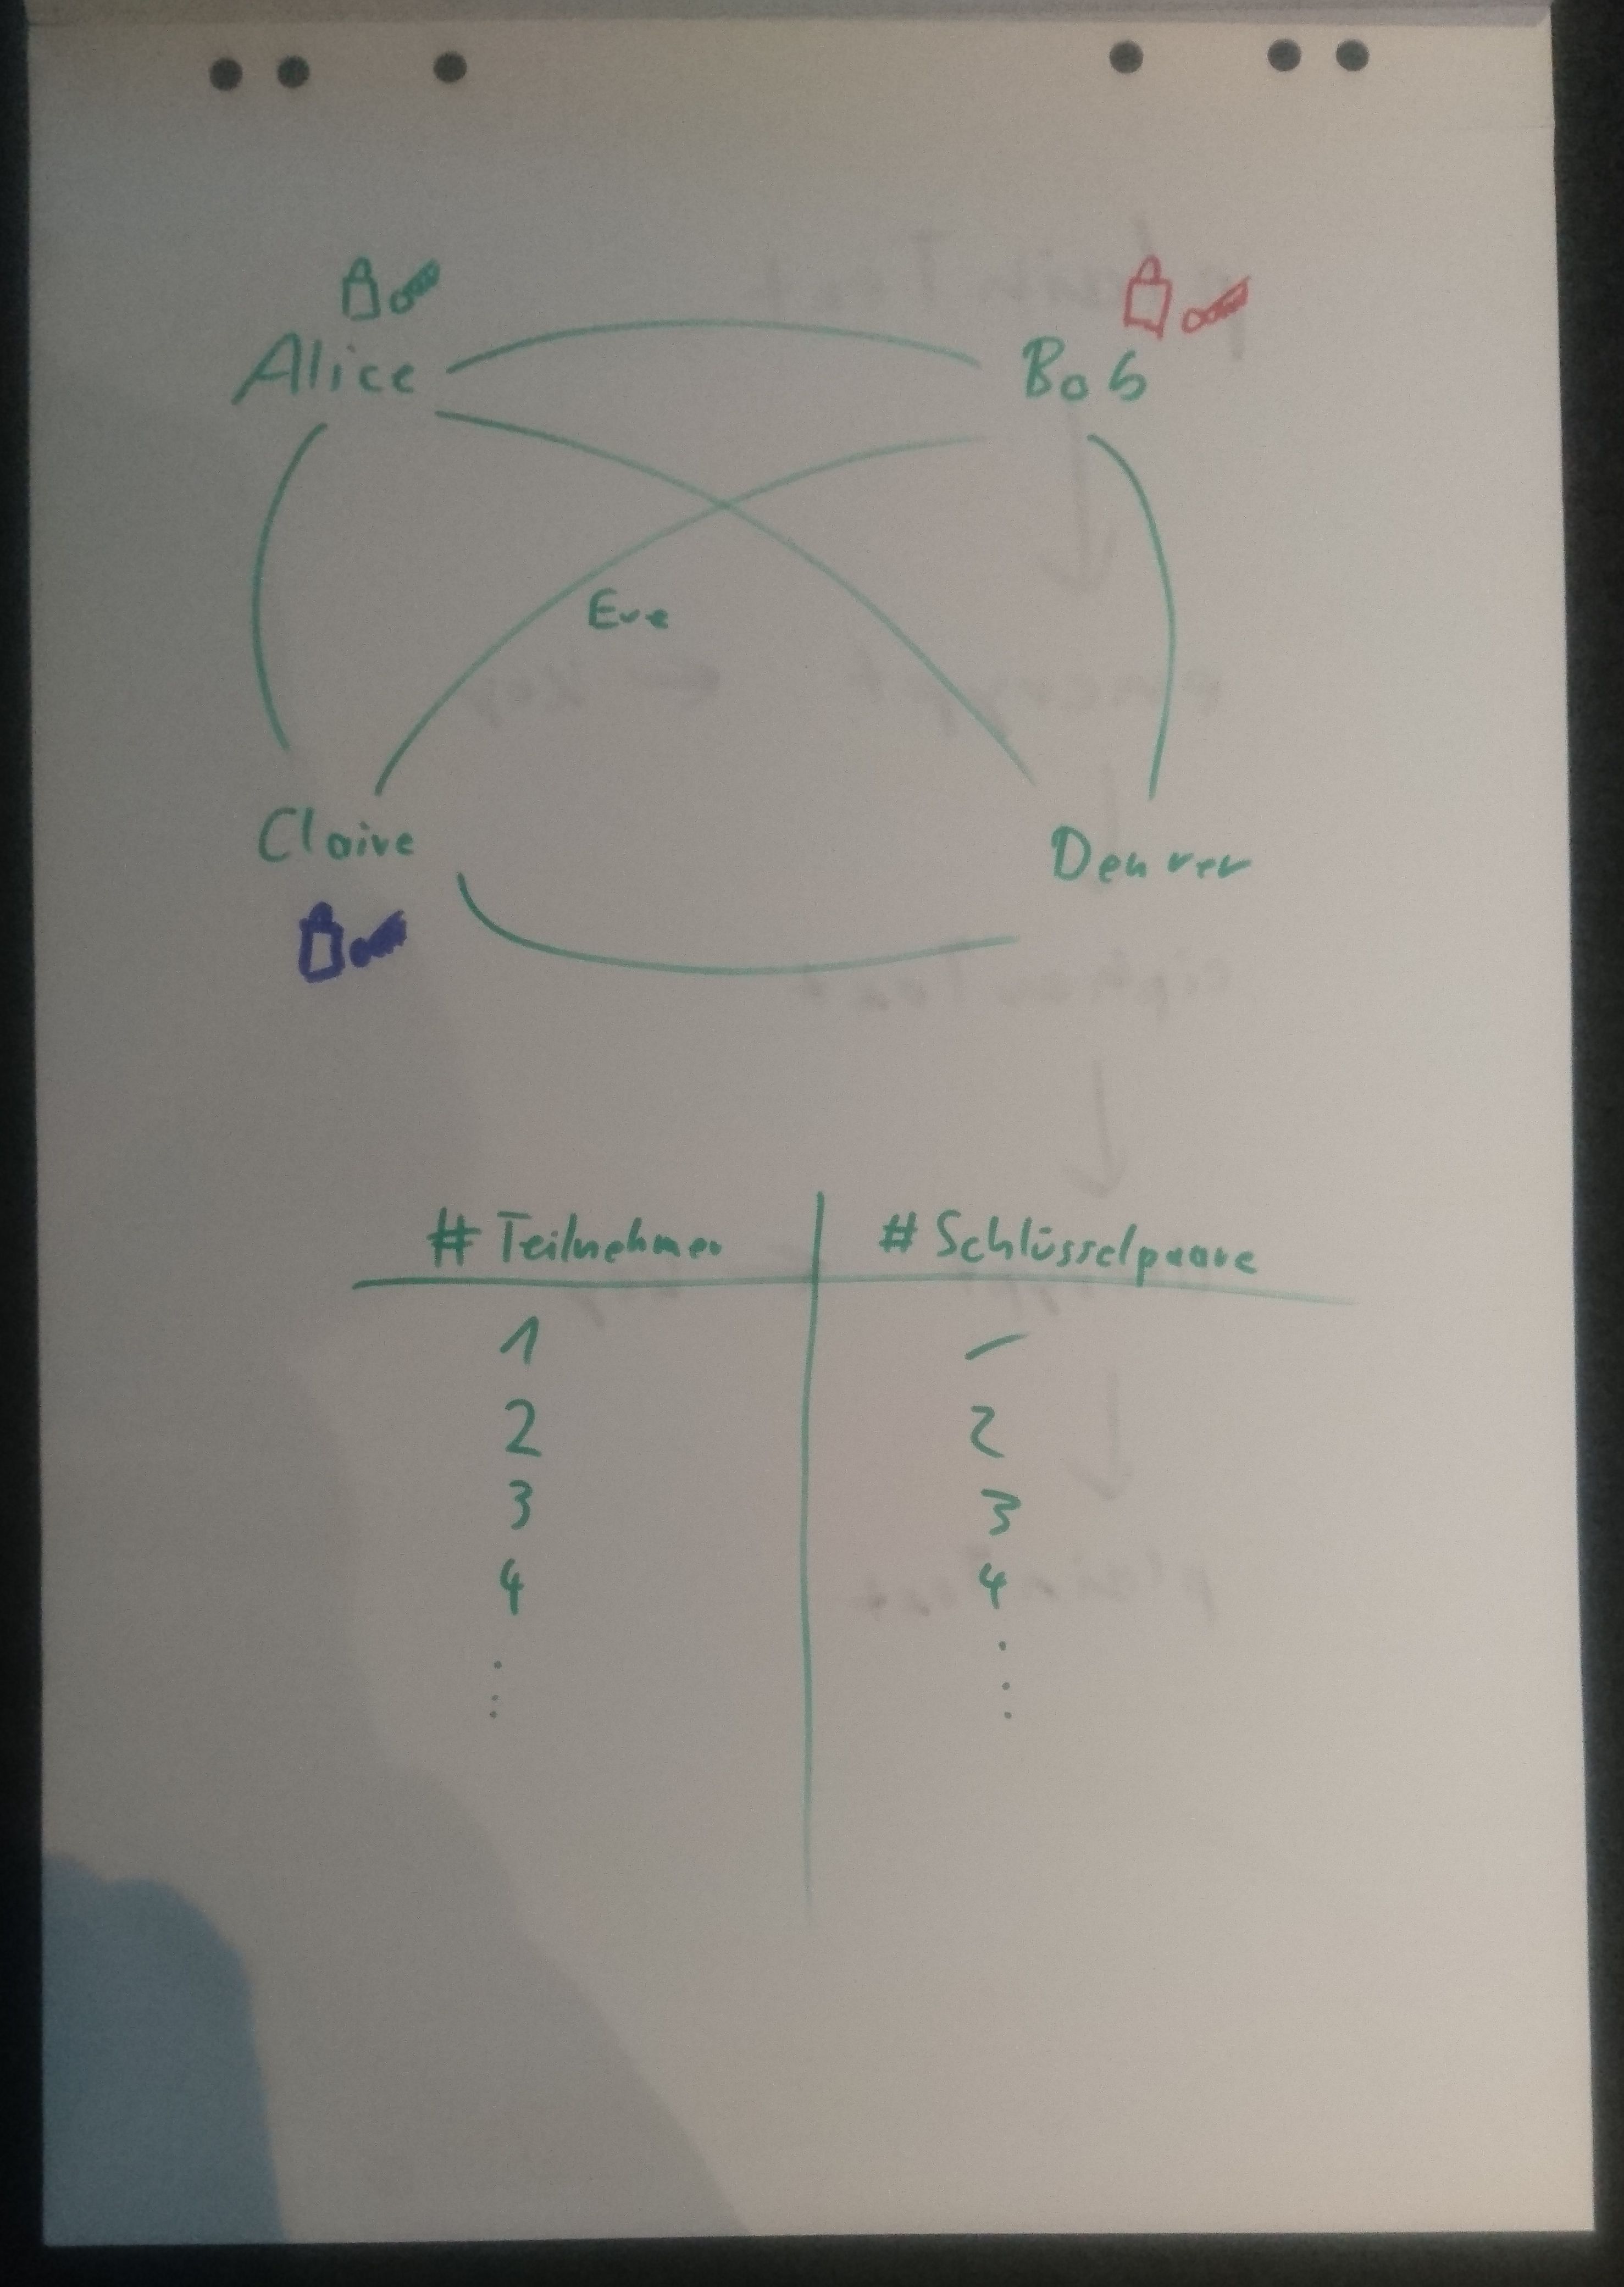 Alice Bob
Eve
Claire Denver
# Teilnehmer # Schlüsselpaare
1 –
2 2
3 3
4 4
⋮ ⋮